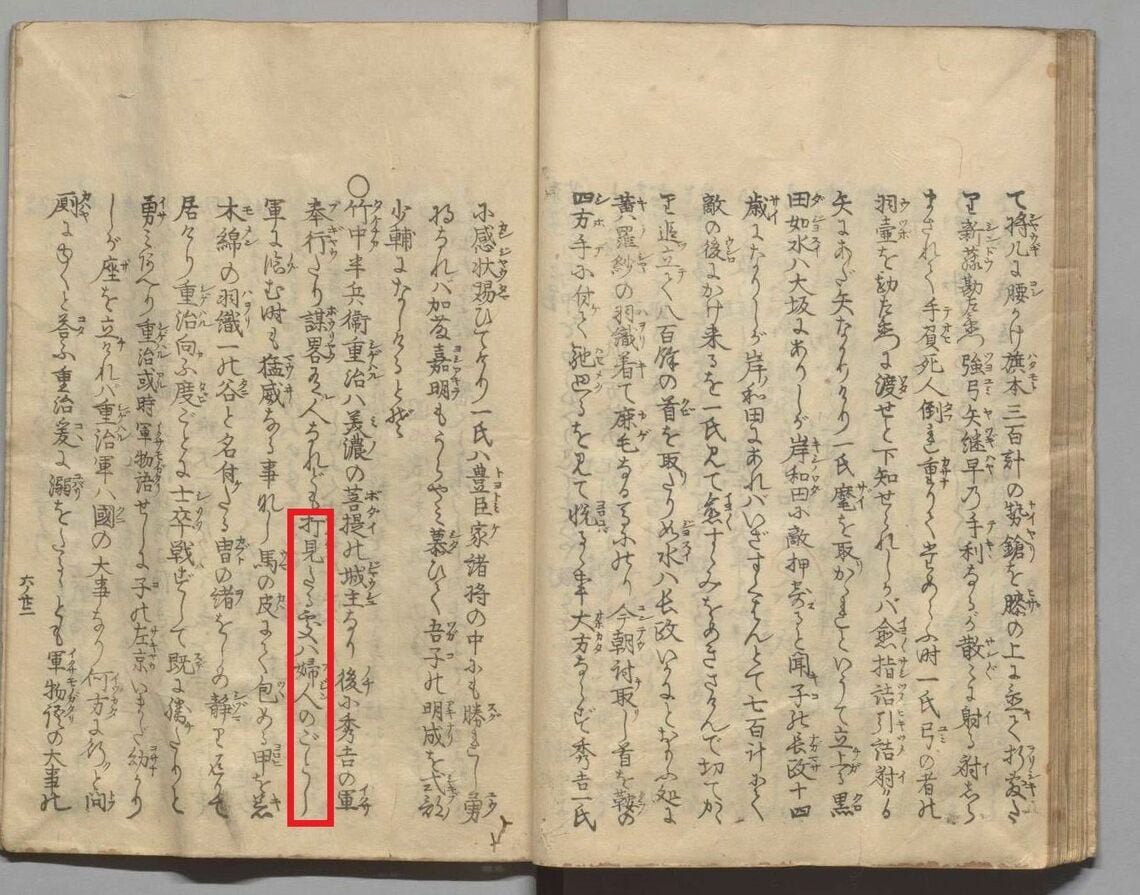 て将几に腰かけ旗本三百計の勢鎗を膝の上に置て折敷た
り新藤勘左衛門強弓矢継早の手利なるが散々に射る射しら
まされて手負死人倒れ重なり
羽壷を勘左衛門に渡せと下知せられしかバ愈指詰引詰射ける
矢にあだ矢なかりけり一氏麾を取かゝれといふて立上る黒
田如水ハ大坂にありしが岸和田に敵押寄ると聞子の長政十四
歳になりしが岸和田にあれバいざすくはんとて七百計にて
敵の後にかけ来るを一氏見て愈すゝみをめきさけんで切てかゝ
り追立て八百餘の首を取たりける如水ハ長政いかにとおもふ処に
黄羅紗の羽織着て鹿毛なる馬に乗り今朝討取し首を鞍の
四方手に付て馳廻るを見て悦る事大方ならず秀吉一氏
に感状賜ひてけり一氏ハ豊臣家諸将の中にも勝れし勇
将なれバ加藤嘉明もうらやみ慕ひて吾子の明成を式部
少輔になしけるとぞ
○竹中半兵衛重治ハ美濃の菩提の城主なり後に秀吉の軍
奉行たり謀略ある人なれども打見たる處ハ婦人のごとし
軍に臨む時も猛威なる事なし馬の皮にて包める甲を着
木綿の羽織一の谷と名付たる冑の緒をしめ静り返りて
居たり重治向ふ度ごとに士卒戦ずして既に勝たりと
勇みあへり重治或時軍物語せしに子の左京いまだ幼かり
しが座を立けれバ重治軍ハ國の大事なり何方に行ッと問
厠にゆくと答ふ重治爰に溺をたるゝとも軍物語の大事の
六ノ廿二